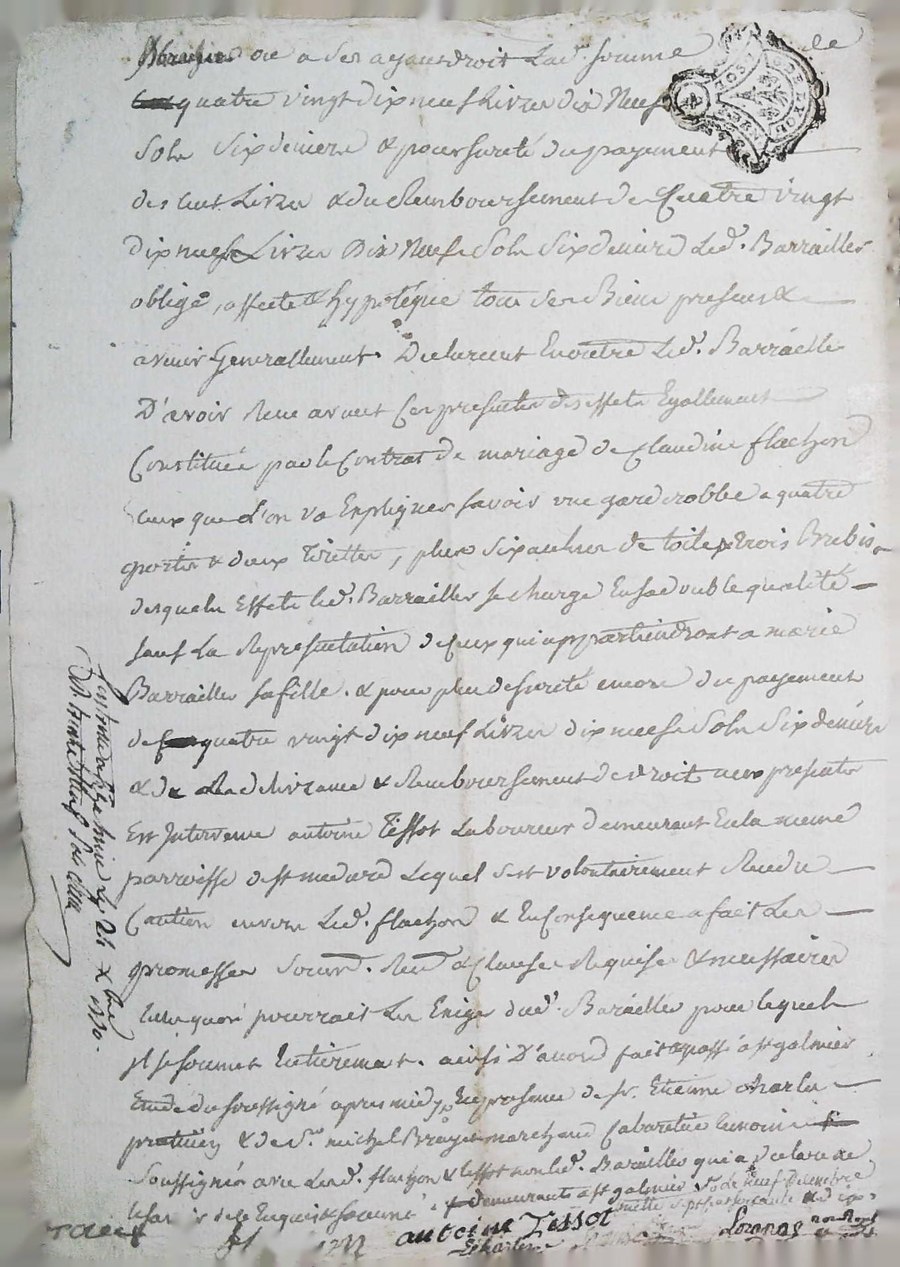 ou a ses ayant droit lad. somme de
quatre vingt dix neuf Livres dix Neuf
Sols Six deniers & pour sureté du payement
des cent Livres & du Remboursement de Quatre vingt
dix neuf Livres Dix Neuf Sols Six deniers Led. Barrailler
obligé, affecte & hypotéque tous ses Biens presens &
avenir Generallement. Declarent Encore Led. Barrailler
D'avoir Reçu avant Ces presentes des effets Egallement
Constitués par le Contrat de mariage de Claudine flachon
ceux que L'on va Expliquer savoir une garderobbe a quatre
portes & deux Tirettes, plus six aulnes de toile & trois Brebis
desquels Effets led. Barrailler se charge En sa double qualité
sauf La Representation de ceux qui appartiendront a marie
Barrailler sa fille. & pour plus de sureté encore du payement
de quatre vingt dix neuf Livres dix neuf Sols Six deniers
& de La delivrance & Remboursement de droit aux presentes
Est Intervenu antoine Tissot Laboureur demeurant En la meme
parroisse de st medard Lequel s'est volontairement Rendu
Caution envers Led. flachon & En Consequence a fait Les
promesses Soum. Ren. & Clauses Requises & necessaires
pourrait Les Exiger dud. Barailler pour lequel
il se soumet Entierement. ainsi D'acord fait & passé a st galmier
Etude du soussigné apres midy En presence de Sr. Etienne charles
praticien & de Sr. michel marchand Cabaretier
Soussignés avec Led. flachon & tissot non led. Barailler qui a declaré ne
le savoir de ce Enquis & sommé demeurants a st galmier le neuf Decembre
antoine Tissot
Charles